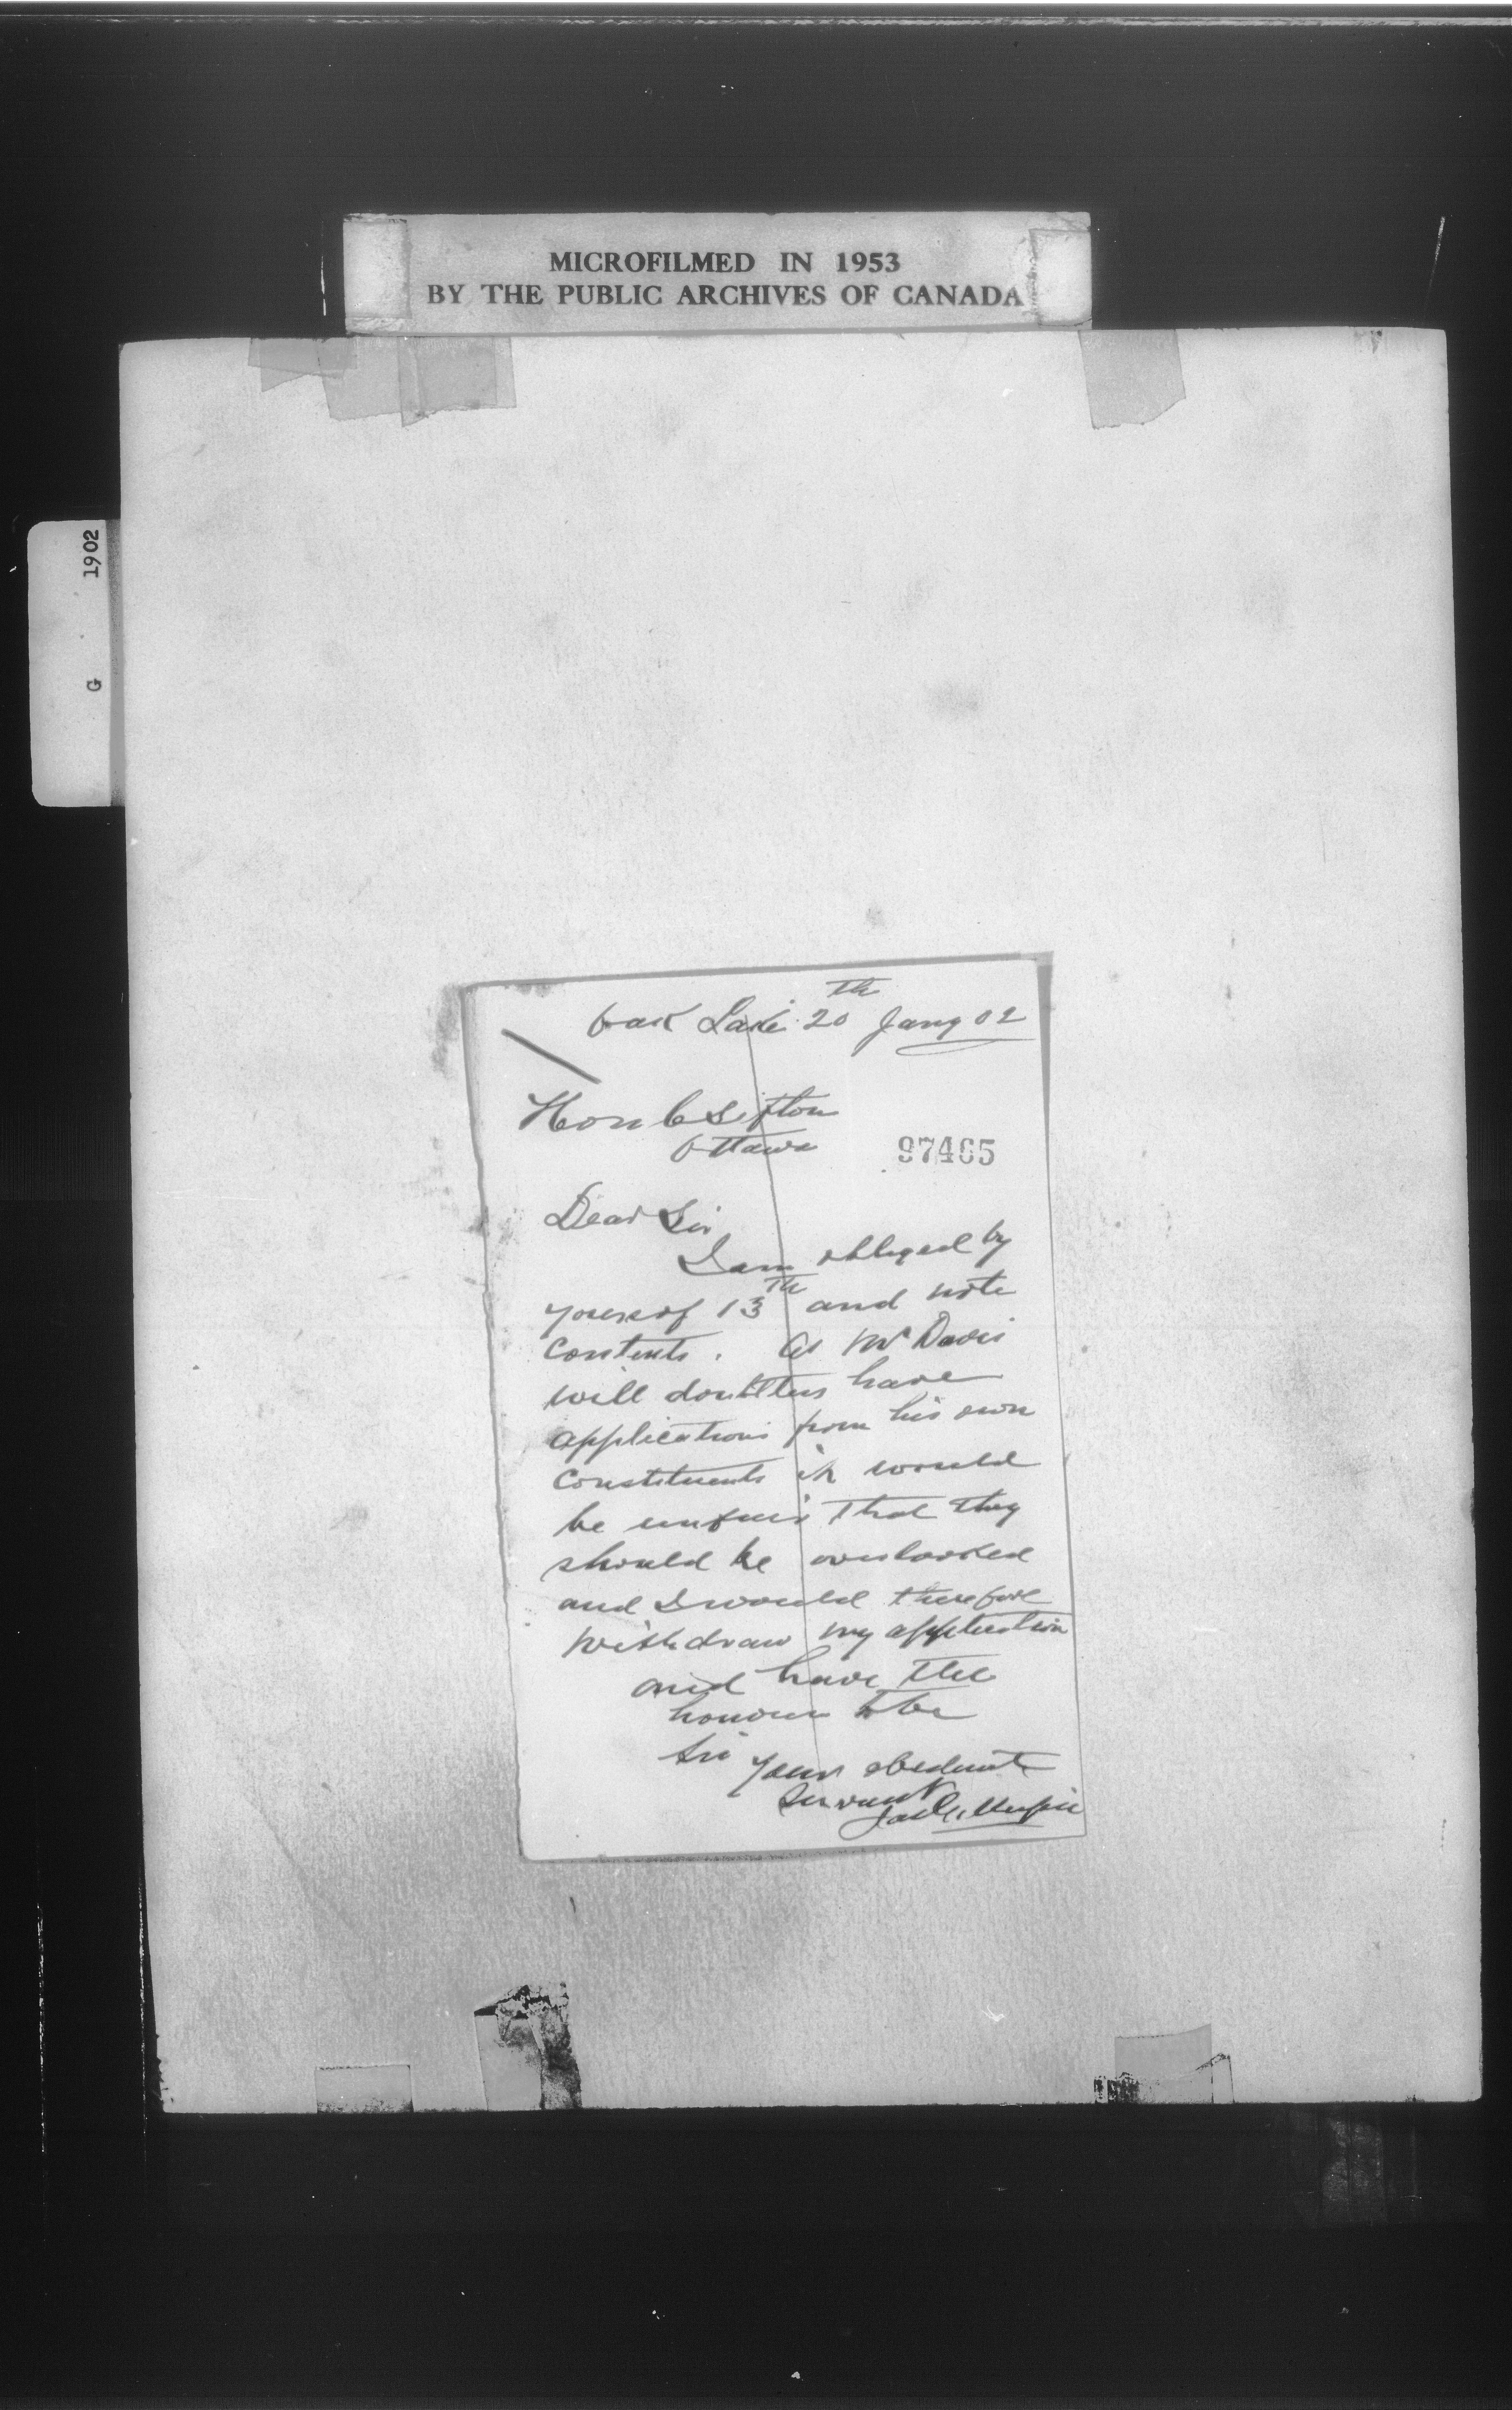 MICROFILMED IN 1953
BY THE PUBLIC ARCHIVES OF CANADA
G 1902
Oak Lake 20th Jany 02
Hon C Sifton
Ottawa
97465
Dear Sir
I am obliged by
yours of 13th and note
contents. As Mr Davis
will doubtless have
applications from his own
constituents it would
be unfair that they
should be overlooked
and I would therefore
withdraw my application
and have the
honour to be
Sir
Your obedient
Servant